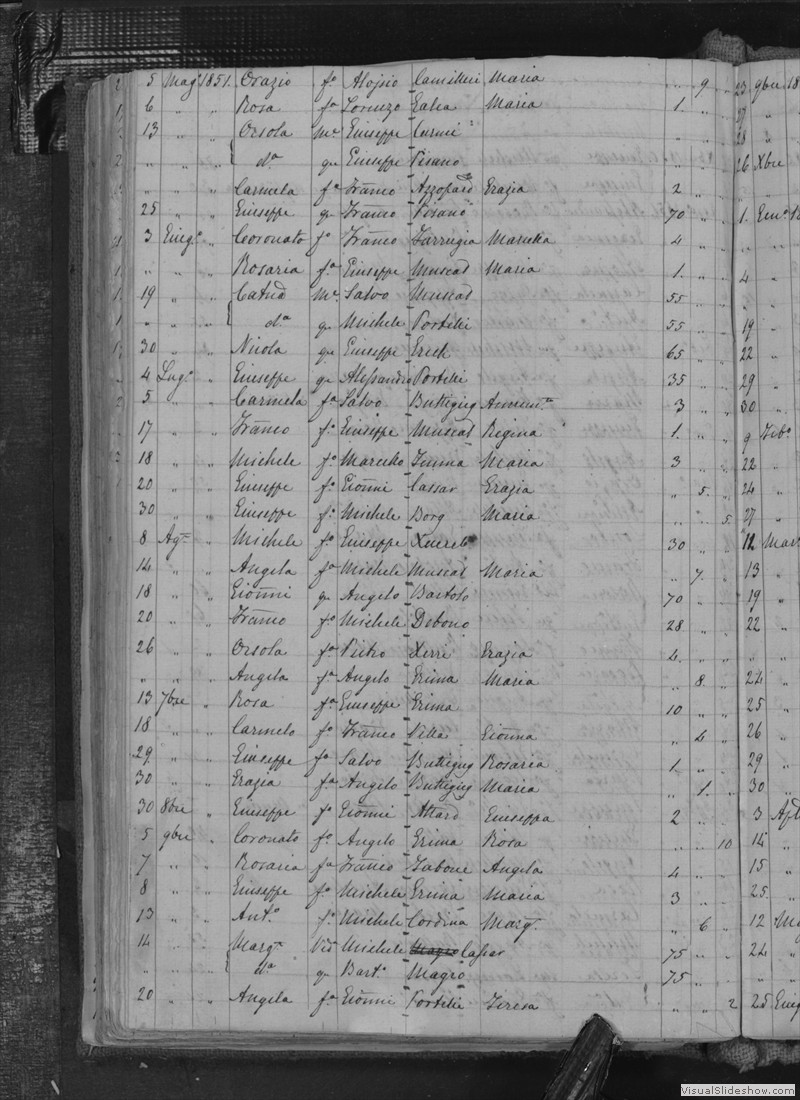 5 Mag° 1851. Orazio f° Aloisio Camilleri Maria „ 9 „ 23 9bre 18
6 „ „ Rosa fa Lorenzo Galea Maria 1. „ „ 27 „
13 „ „ Orsola Me Giuseppe Curmi „ „ 28 „
„ „ „ da qm Giuseppe Pisano 26 Xbre
„ „ „ Carmela fa Franco Azzopardi Grazia 2 „ „
25 „ „ Giuseppe qm Franco Pisano 70 „ „ 1.
3 Giug° „ Coronato f° Franco Farrugia Maruska 4 „ „
„ „ „ Rosaria fa Giuseppe Muscat Maria 1. „ „ 4 „
19 „ „ Me Salvo Muscat 55 „ „
„ „ „ da qm Michele Portelli 55 „ „ 19 „
30 „ „ Nicola qm Giuseppe Grech 65 „ „ 22 „
4 Lug° „ Giuseppe qm Alessandro Portelli 35 „ „ 29 „
5 „ „ Carmela fa Salvo Buttigieg 3 „ „ 30 „
17 „ „ Franco f° Giuseppe Muscat Regina 1. „ „ 9 Feb°
18 „ „ Michele f° Maria 3 „ „ 22 „
20 „ „ Giuseppe f° Gionni Cassar Grazia „ 5. „ 24 „
30 „ „ Giuseppe f° Michele Borg Maria „ „ 5 27 „
8 Ag° „ Michele f° Giuseppe Xuereb 30 „ „ 12 Mar
14 „ „ Angela fa Michele Muscat Maria „ 7. „ 13 „
18 „ „ Gionni qm Angelo Bartolo 70 „ „ 19 „
20 „ „ Franco f° Michele Debono 28 „ „ 22 „
26 „ „ Orsola fa Pietro Xerri Grazia 4. „ „ „ „
„ „ „ Angela fa Angelo Grima Maria „ 8. „ 24 „
13 7bre „ Rosa fa Giuseppe Grima 10 „ „ 25 „
18 „ „ Carmelo f° Franco Vella Gionna „ 4 „ 26 „
29 „ „ Giuseppe f° Salvo Buttigieg Rosaria 1 „ „ 29 „
30 „ „ Grazia fa Angelo Buttigieg Maria „ 1. „ 30 „
30 8bre „ Giuseppe f° Gionni Attard Giuseppa 2 „ „ 3
5 9bre „ Coronato f° Angelo Grima Rosa „ „ 10 14 „
7 „ „ Rosaria fa Franco Tabone Angela 4 „ „ 15 „
8 „ „ Giuseppe f° Michele Grima Maria 3 „ „ 25 „
13 „ „ Ant° f° Michele Cordina Marga „ 6 „ 12
14 „ „ Marga Vid Michele Magro Cassar 75 „ „ 24 „
„ „ „ da qm Bart° Magro 75 „ „ „ „
20 „ „ Angela fa Gionni Portelli Teresa „ „ 2 25 Giug
VisualSlideshow.com